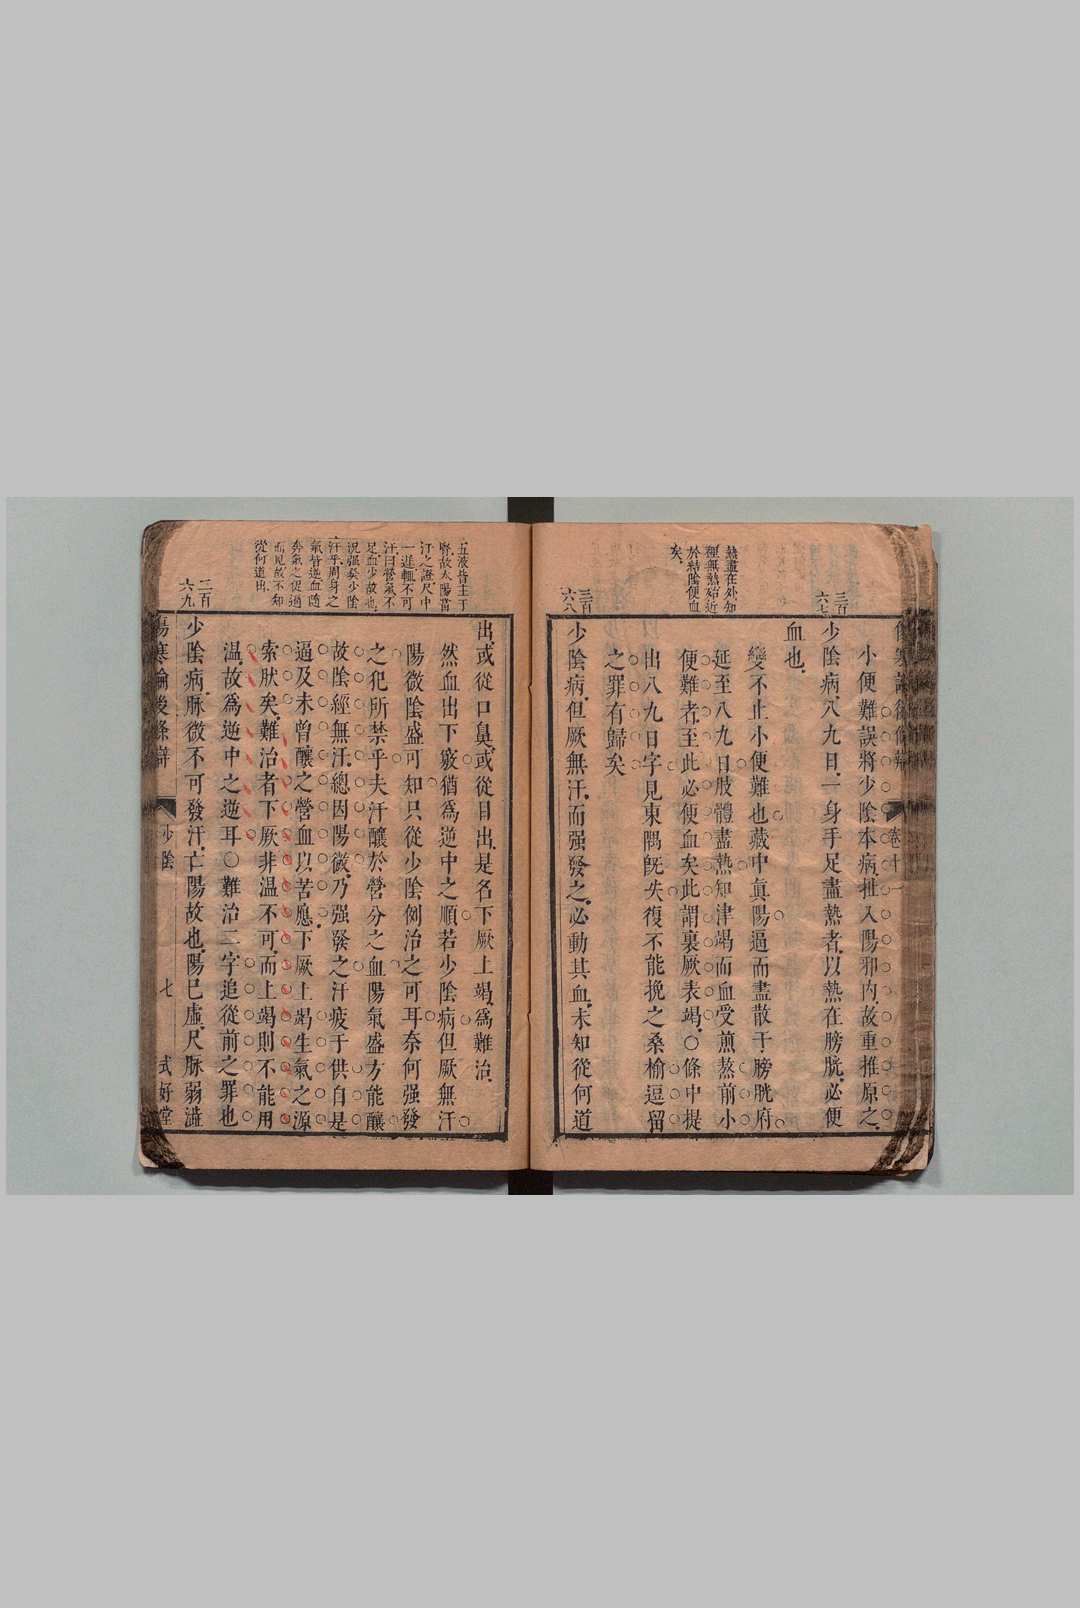 熱盡在外知
裡無熱殆近
於結陰便血
矣
三百
六七
三百
六八
卷十一
小便難誤將少陰本病扯入陽邪內故重推原之
少陰病八九日一身手足盡熱者以熱在膀胱必便
血也
變不止小便難也藏中眞陽逼而盡散于膀胱府
延至八九日肢體盡熱知津竭而血受煎熬前小
便難者至此必便血矣此謂裏厥表竭○條中提
出八九日字見東隅旣失復不能挽之桑榆逗留
之罪有歸矣
少陰病但厥無汗而强發之必動其血未知從何道
五液皆主于
腎故太陽當
汗之證尺中
一遲輒不可
汗曰營氣不
足血少故也
況强發少陰
汗乎周身之
氣皆逆血隨
奔氣之促逼
而見故不知
從何道出
三百
六九
出或從口鼻或從目出是名下厥上竭爲難治
然血出下竅猶爲逆中之順若少陰病但厥無汗
陽微陰盛可知只從少陰例治之可耳奈何强發
之犯所禁乎夫汗釀於營分之血陽氣盛方能釀
故陰經無汗總因陽微乃强發之汗疲于供自是
逼及未曾釀之營血以苦應下厥上竭生氣之源
索肰矣難治者下厥非温不可而上竭則不能用
温故爲逆中之逆耳○難治二字追從前之罪也
少陰病脉微不可發汗亡陽故也陽已虛尺脉弱澁
傷寒論後條辯
少陰
七
式好堂